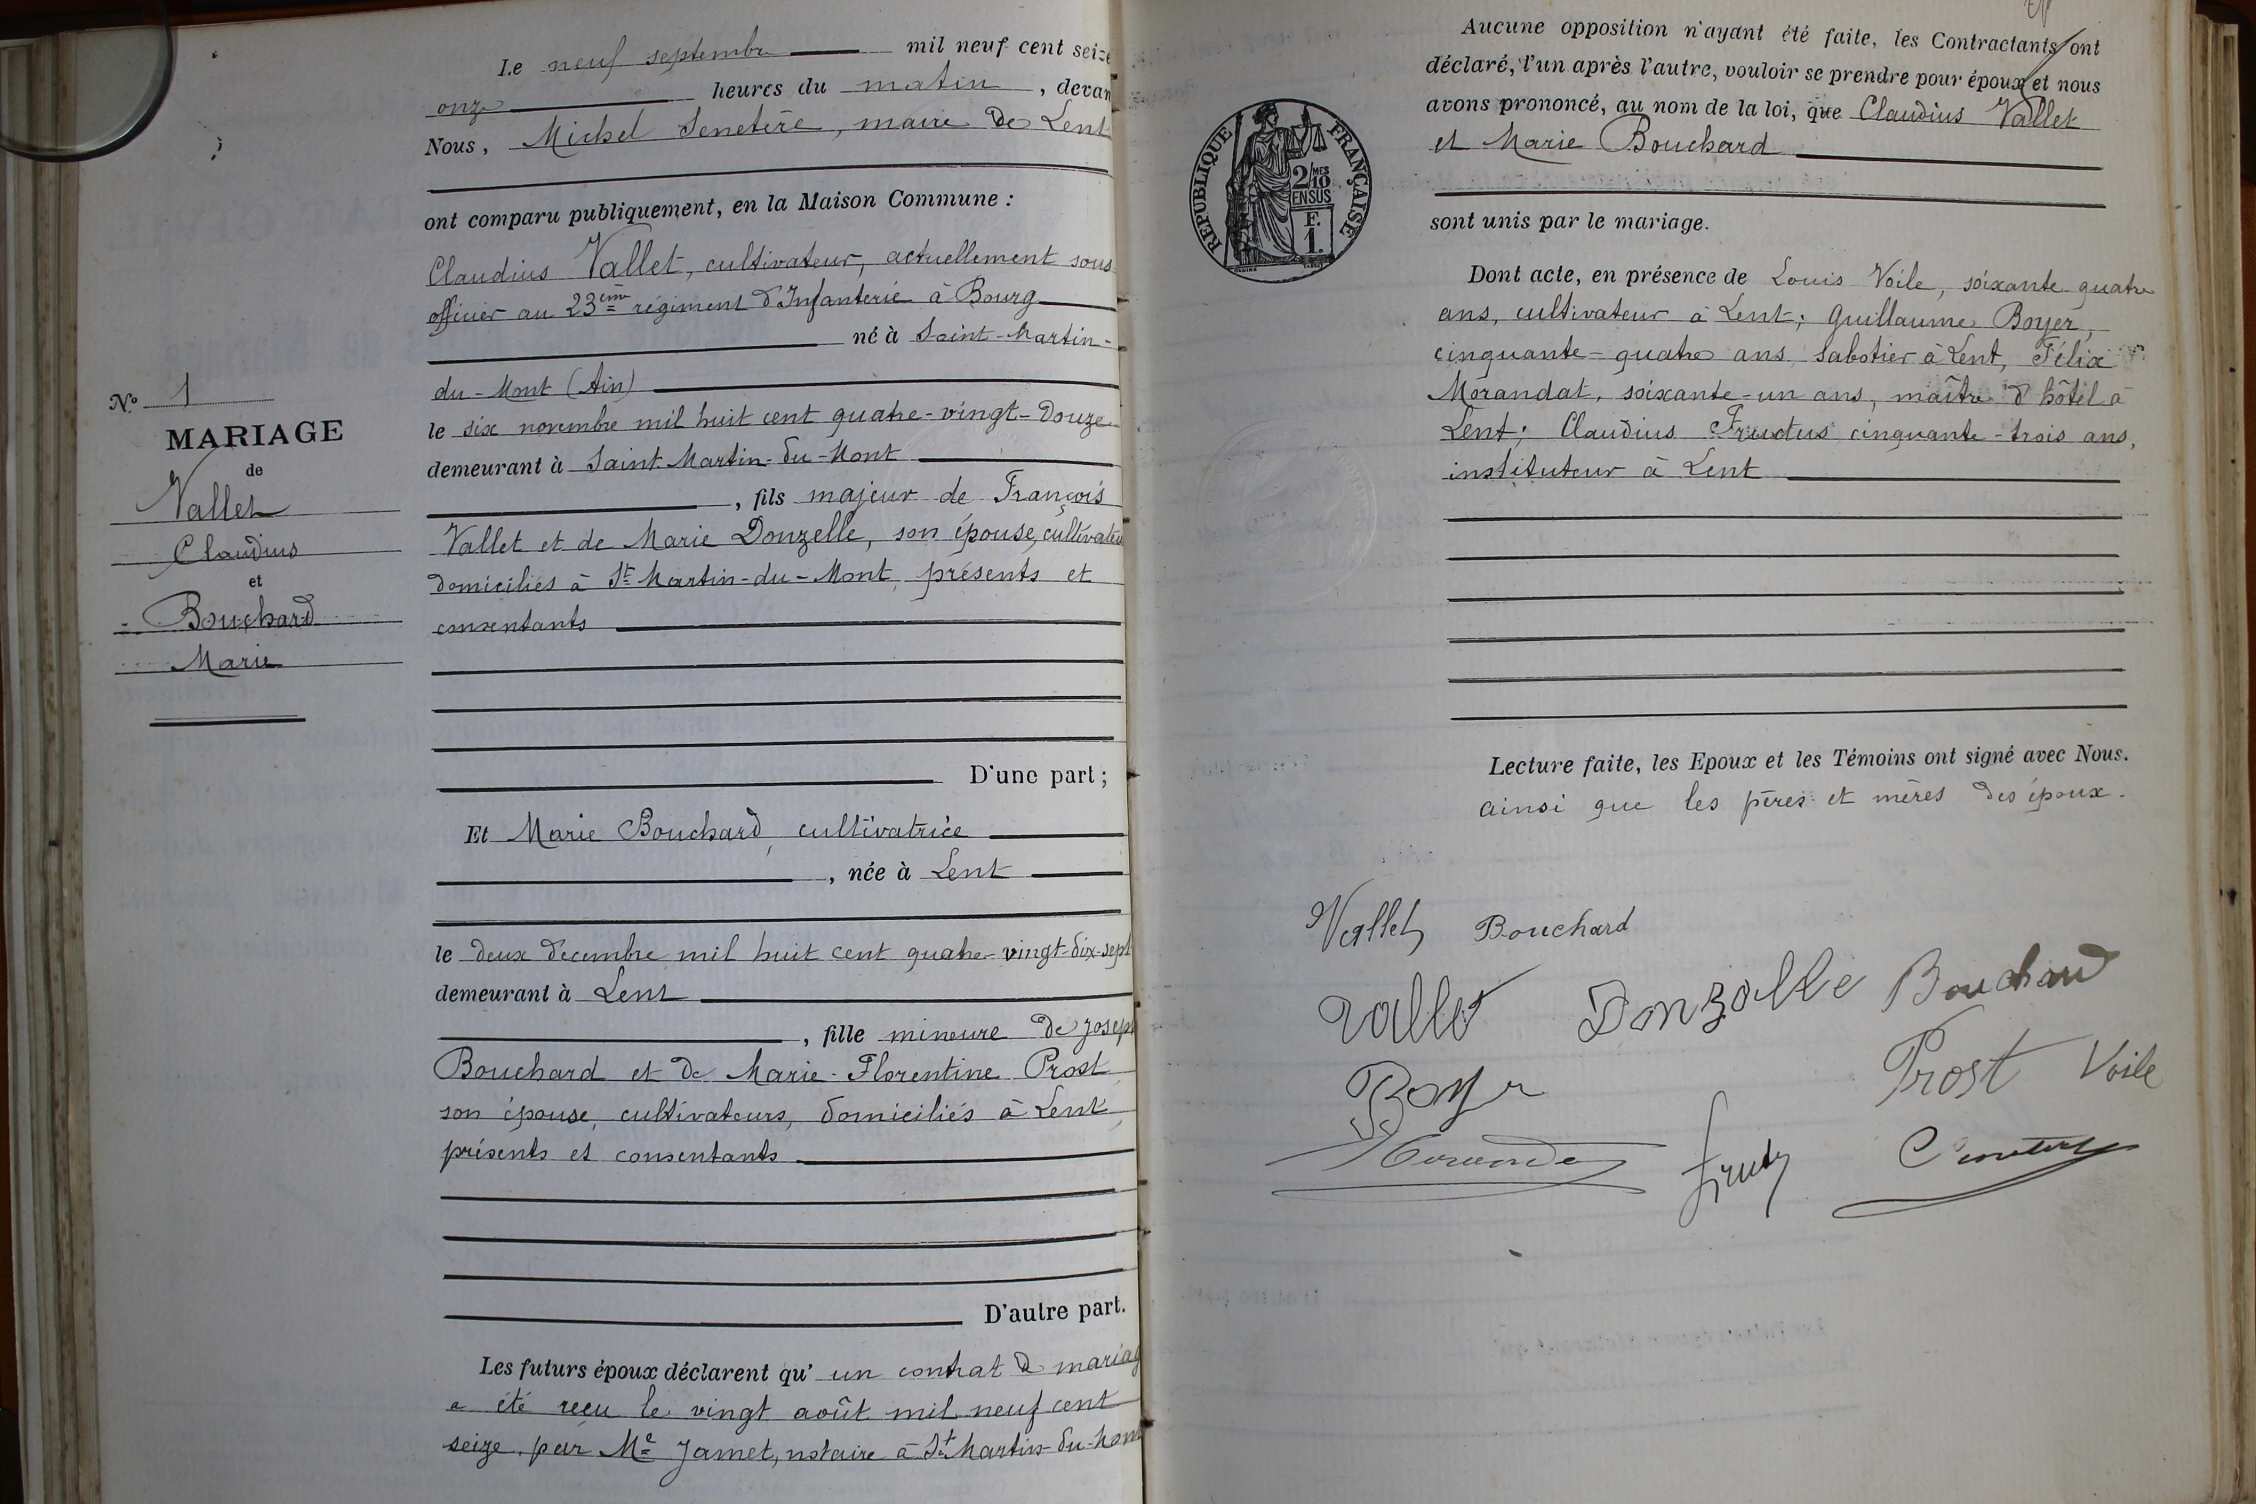 Le neuf septembre mil neuf cent seize
onze heures du matin, devan
Nous, Michel Senetère, maire de Lent
ont comparu publiquement, en la Maison Commune :
Claudius Vallet, cultivateur, actuellement sous
officier au 23ème régiment d'Infanterie à Bourg
né à Saint-Martin-
du-Mont (Ain)
le six novembre mil huit cent quatre-vingt-douze
demeurant à Saint Martin-du-Mont
, fils majeur de François
Vallet et de Marie Donzelle, son épouse, cultivateu
domiciliés à St Martin-du-Mont, présents et
consentants
D'une part ;
Et Marie Bouchard, cultivatrice
, née à Lent
le deux décembre mil huit cent quatre-vingt-dix-sept
demeurant à Lent
, fille mineure de Joseph
Bouchard et de Marie-Florentine Prost
son épouse, cultivateurs, domiciliés à Lent,
présents et consentants
D'autre part.
Les futurs époux déclarent qu' un contrat de mariag
a été reçu le vingt août mil neuf cent
seize par Me Jamet, notaire à St Martin-du-Mont
No 1
MARIAGE
de
Vallet
Claudius
et
Bouchard
Marie
Aucune opposition n'ayant été faite, les Contractants ont
déclaré, l'un après l'autre, vouloir se prendre pour époux et nous
avons prononcé, au nom de la loi, que Claudius Vallet
et Marie Bouchard
sont unis par le mariage.
REPUBLIQUE FRANÇAISE
2/10 MES
EN SUS
F.
1.
Dont acte, en présence de Louis Voile, soixante quatre
ans, cultivateur à Lent; Guillaume Boyer,
cinquante-quatre ans, sabotier à Lent, Félix
Morandat, soixante-un ans, maître d'hôtel à
Lent; Claudius Fructus cinquante-trois ans,
instituteur à Lent
Lecture faite, les Epoux et les Témoins ont signé avec Nous.
ainsi que les pères et mères des époux.
Vallet Bouchard
Vallet Donzelle Bouchard
Boyer Prost Voile